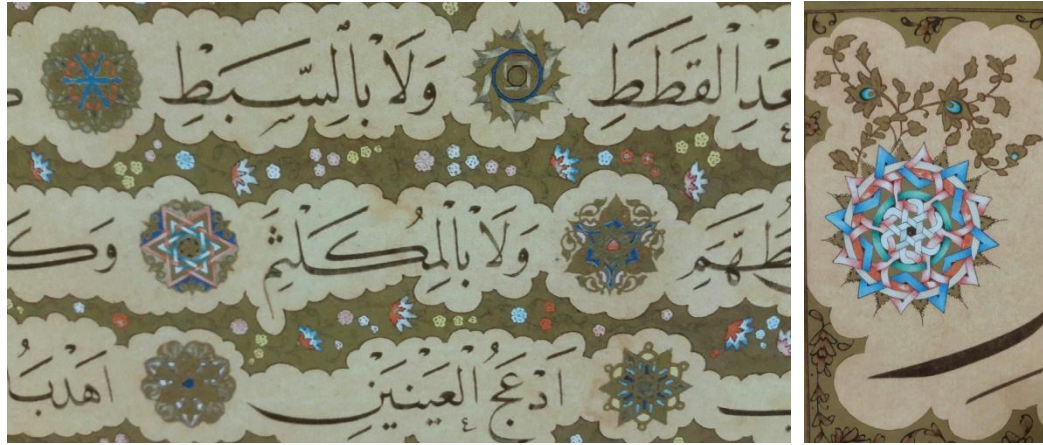 عْدِ الْقَطَطِ وَلَا بِالسَّبَطِ
طَهَّمِ وَلَا بِالْمُكَلْثَمِ وَكَ
اَدْعَجُ الْعَيْنَيْنِ اَهْدَبُ